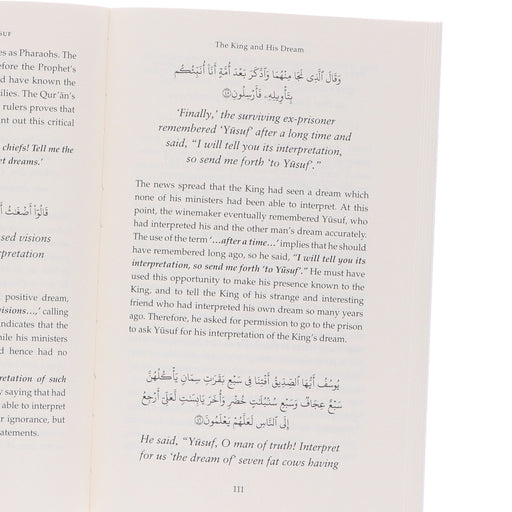 SUF
es as Pharaohs. The
efore the Prophet's
d have known the
ilies. The Qur'ān's
rulers proves that
nt out this critical
chiefs! Tell me the
et dreams.'
قَالُوٓا۟ أَضْغَٰثُ أَ
sed visions
rpretation
positive dream,
visions…,' calling
ndicates that the
hile his ministers
d hence had no
retation of such
y saying that had
able to interpret
r ignorance, but
atements.
The King and His Dream
وَقَالَ ٱلَّذِى نَجَا مِنْهُمَا وَٱدَّكَرَ بَعْدَ أُمَّةٍ أَنَا۠ أُنَبِّئُكُم
بِتَأْوِيلِهِۦ فَأَرْسِلُونِ
'Finally,' the surviving ex-prisoner
remembered 'Yūsuf' after a long time and
said, "I will tell you its interpretation,
so send me forth 'to Yūsuf'."
The news spread that the King had seen a dream which
none of his ministers had been able to interpret. At this
point, the winemaker eventually remembered Yūsuf, who
had interpreted his and the other man's dream accurately.
The use of the term '…after a time…' implies that he should
have remembered long ago, so he said, "I will tell you its
interpretation, so send me forth 'to Yūsuf'." He must have
used this opportunity to make his presence known to the
King, and to tell the King of his strange and interesting
friend who had interpreted his own dream so many years
ago. Therefore, he asked for permission to go to the prison
to ask Yūsuf for his interpretation of the King's dream.
يُوسُفُ أَيُّهَا ٱلصِّدِّيقُ أَفْتِنَا فِى سَبْعِ بَقَرَٰتٍ سِمَانٍ يَأْكُلُهُنَّ
سَبْعٌ عِجَافٌ وَسَبْعِ سُنۢبُلَٰتٍ خُضْرٍ وَأُخَرَ يَابِسَٰتٍ لَّعَلِّىٓ أَرْجِعُ
إِلَى ٱلنَّاسِ لَعَلَّهُمْ يَعْلَمُونَ
He said, "Yūsuf, O man of truth! Interpret
for us 'the dream of' seven fat cows having
111